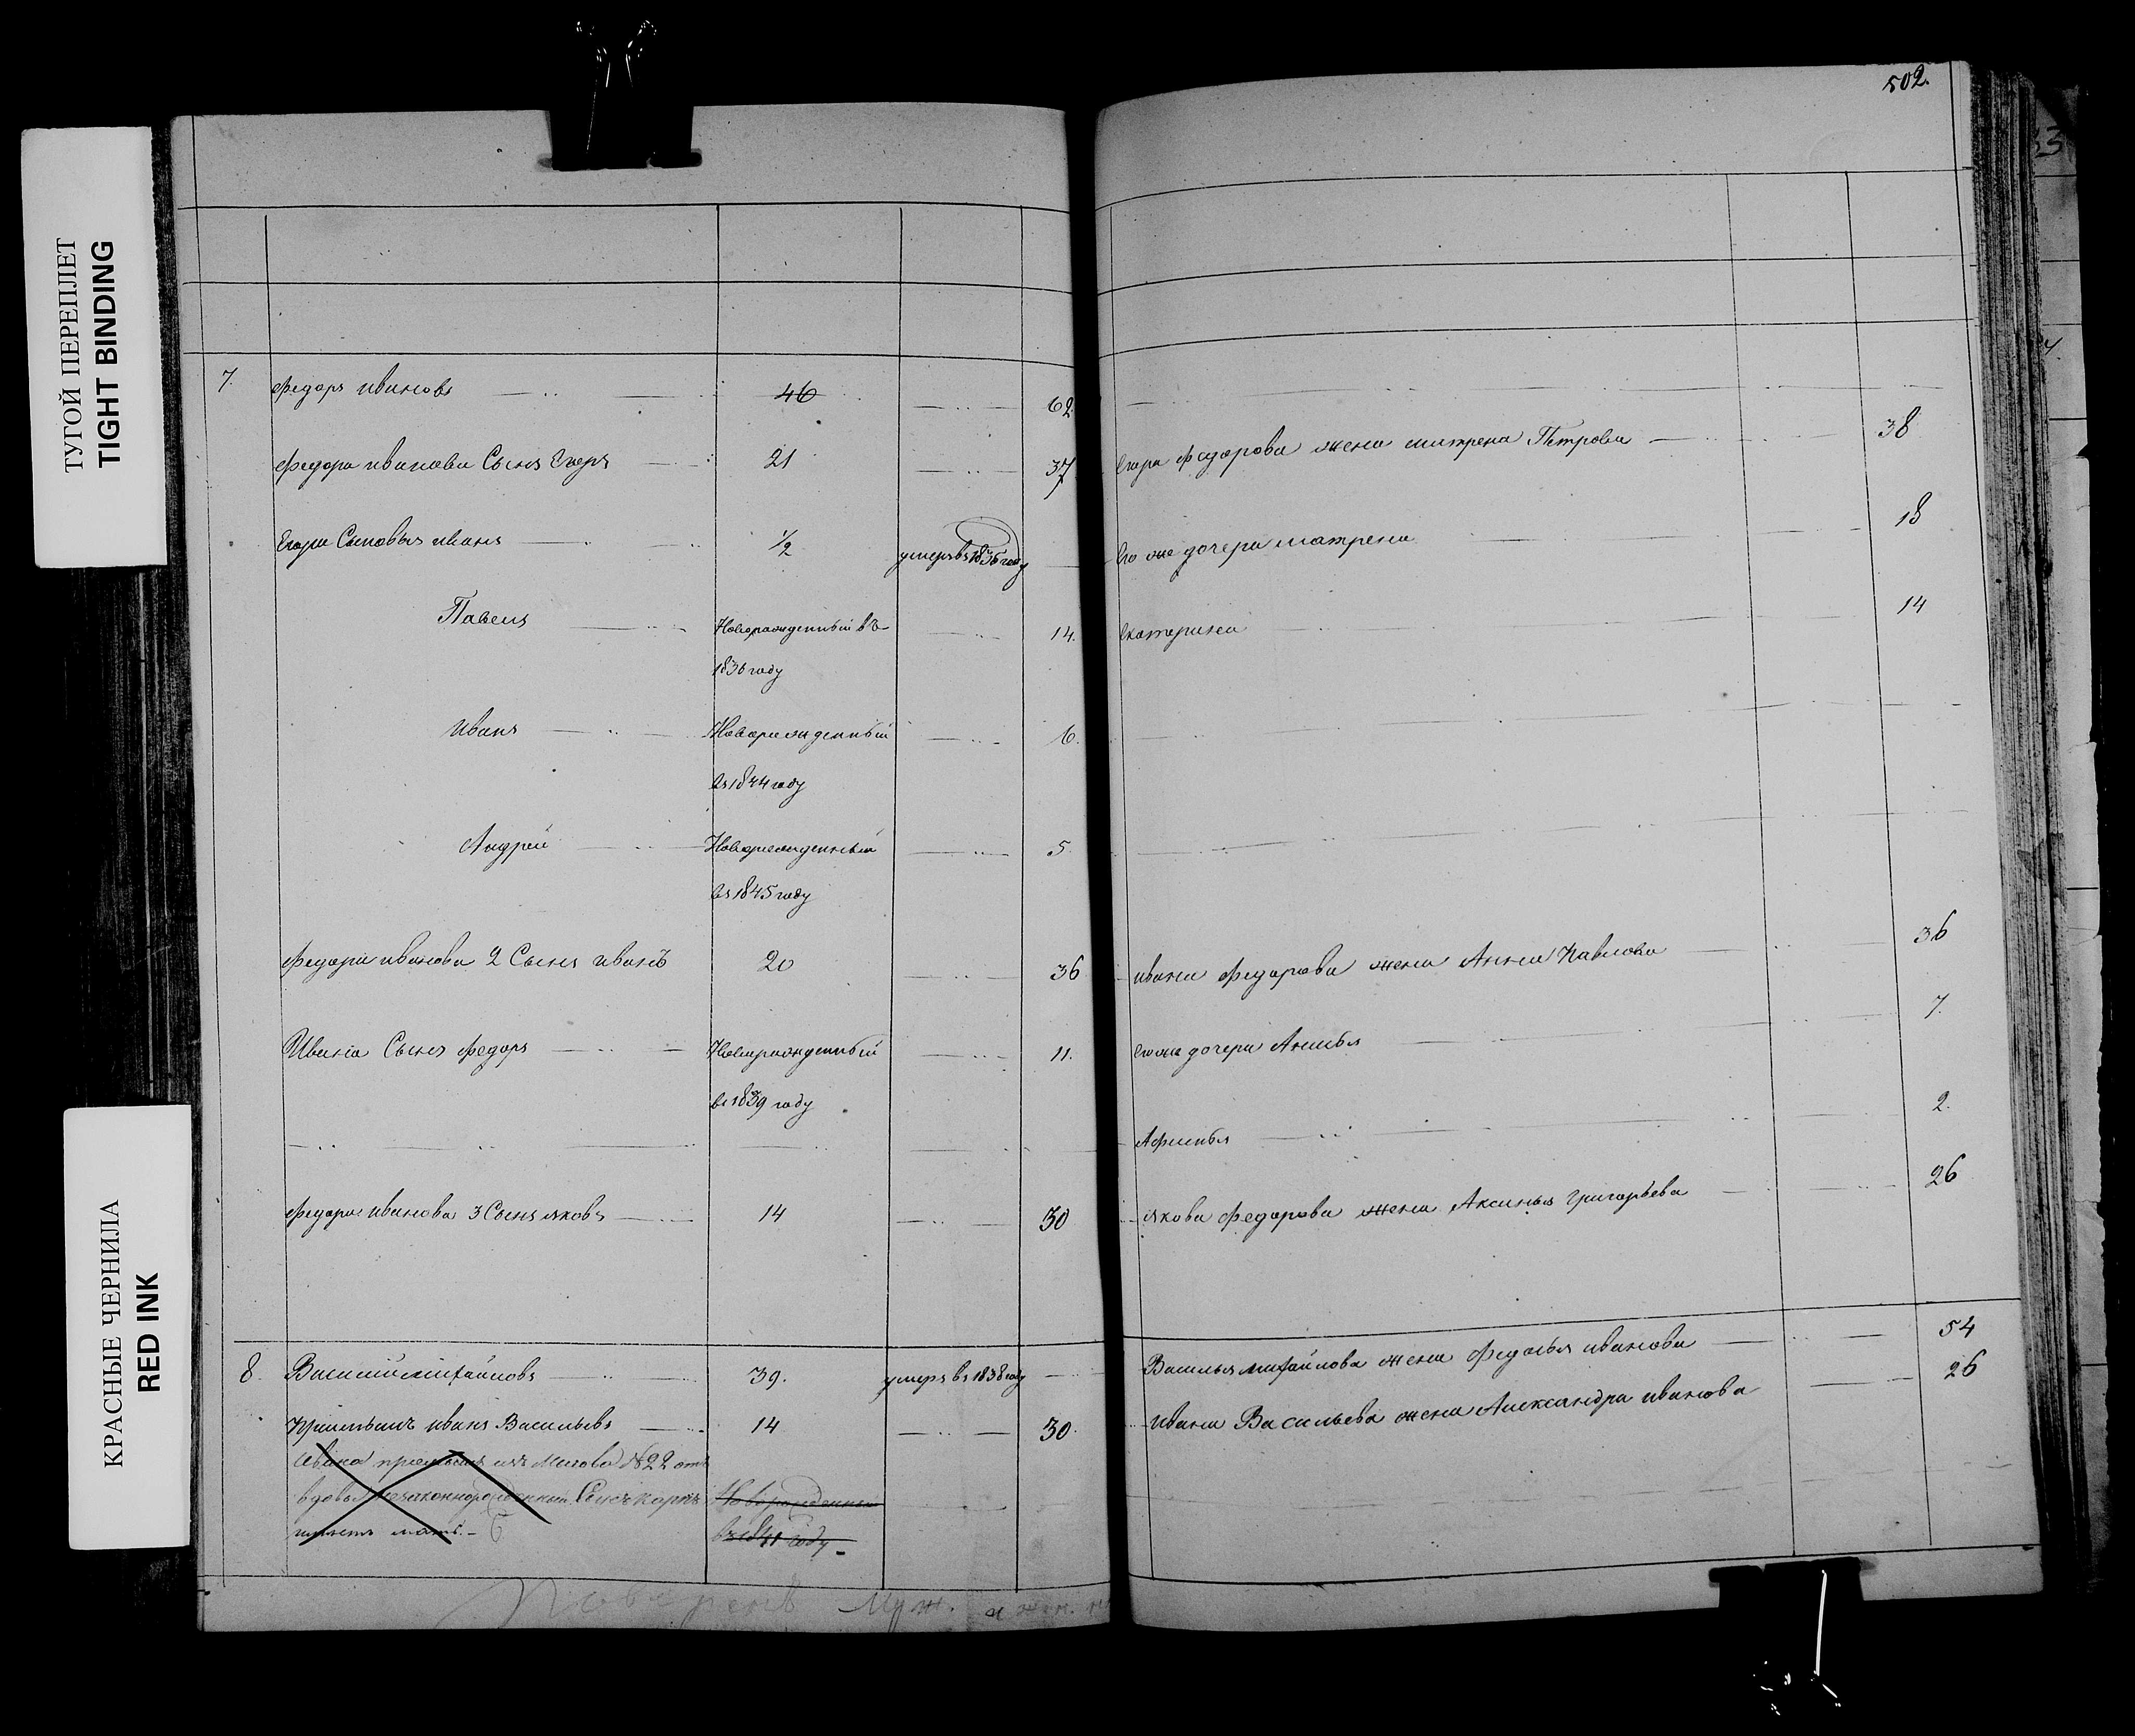 502.
ТУГОЙ ПЕРЕПЛЕТ
TIGHT BINDING
КРАСНЫЕ ЧЕРНИЛА
RED INK
7. Федоръ Ивановъ 46 62.
Федора Иванова Сынъ Егоръ 21 37
Егора Сыновья Иванъ 1/2 умеръ въ 1836 году
Павелъ Новорожденный въ 14.
1836 году
Иванъ Новорожденный 6.
въ 1844 году
Андрей Новорожденный 5.
въ 1845 году
Федора Иванова 2 Сынъ Иванъ 20 36
Ивана Сынъ Федоръ Новорожденный 11.
въ 1839 году
Федора Иванова 3 Сынъ Яковъ 14 30
8. Василий Михайловъ 39. умеръ въ 1838 году
Приемышъ Иванъ Васильевъ 14 30
Ивана приемышъ изъ № 22 отъ
вдовы незаконнорожденный Сынъ Карпъ Новорожденный
мать. въ 1841 году
Муж. и жен.
Егора Федорова жена Матрена Петрова 38
Его же дочери Матрена 18
Екатерина 14
Ивана Федорова жена Анна Павлова 36
Его же дочери Анисья 7.
Афимья 2.
Якова Федорова жена Аксинья Григорьева 26
Василья Михайлова жена Федосья Иванова 54
Ивана Васильева жена Александра Иванова 26